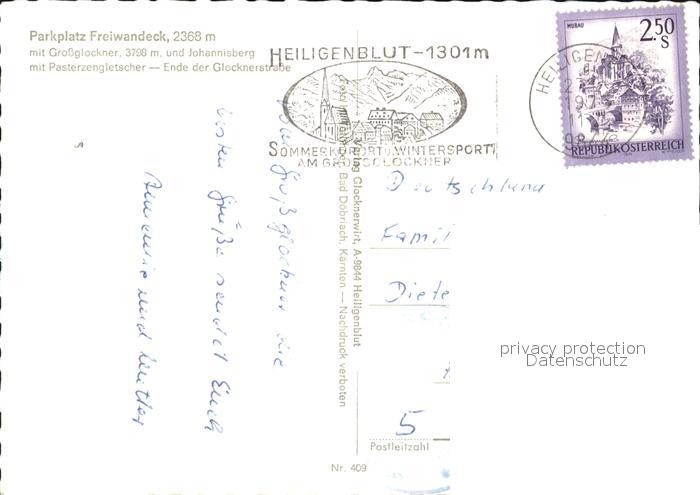 Parkplatz Freiwandeck, 2368 m
mit Großglockner, 3798 m, und Johannisberg
mit Pasterzengletscher — Ende der Glocknerstraße
HEILIGENBLUT-1301m
SOMMERKURORT U WINTERSPORT
AM GROSSGLOCKNER
HEILIGEN
MURAU
2.50
S
REPUBLIK ÖSTERREICH
Großglockner die
besten Grüße sendet Euch
Annemie und Mutter
Verlag Glocknerwirt, A-9844 Heiligenblut
Bad Döbriach, Kärnten — Nachdruck verboten
Deutschland
Famil
Diete
5
Postleitzahl
Nr. 409
privacy protection
Datenschutz